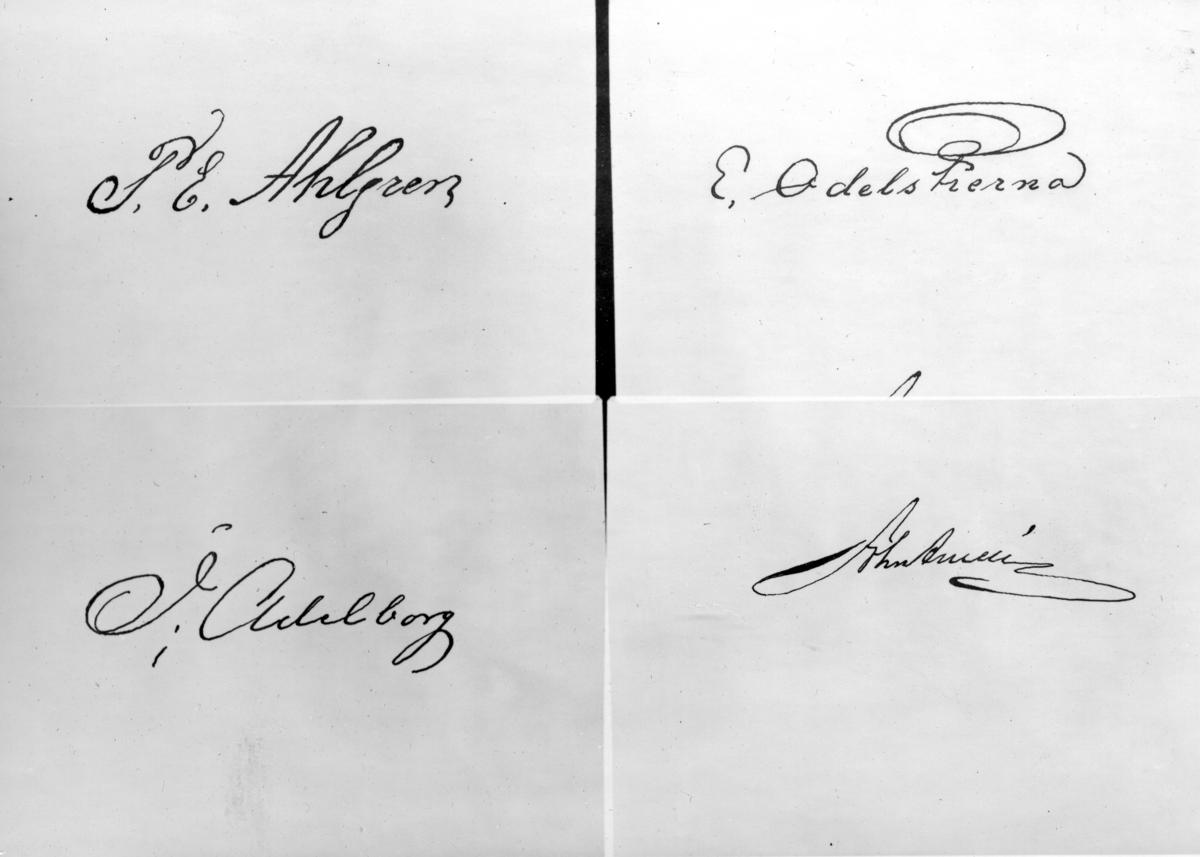 P. E. Ahlgren
E. Odelstierna
J. Adelborg
John